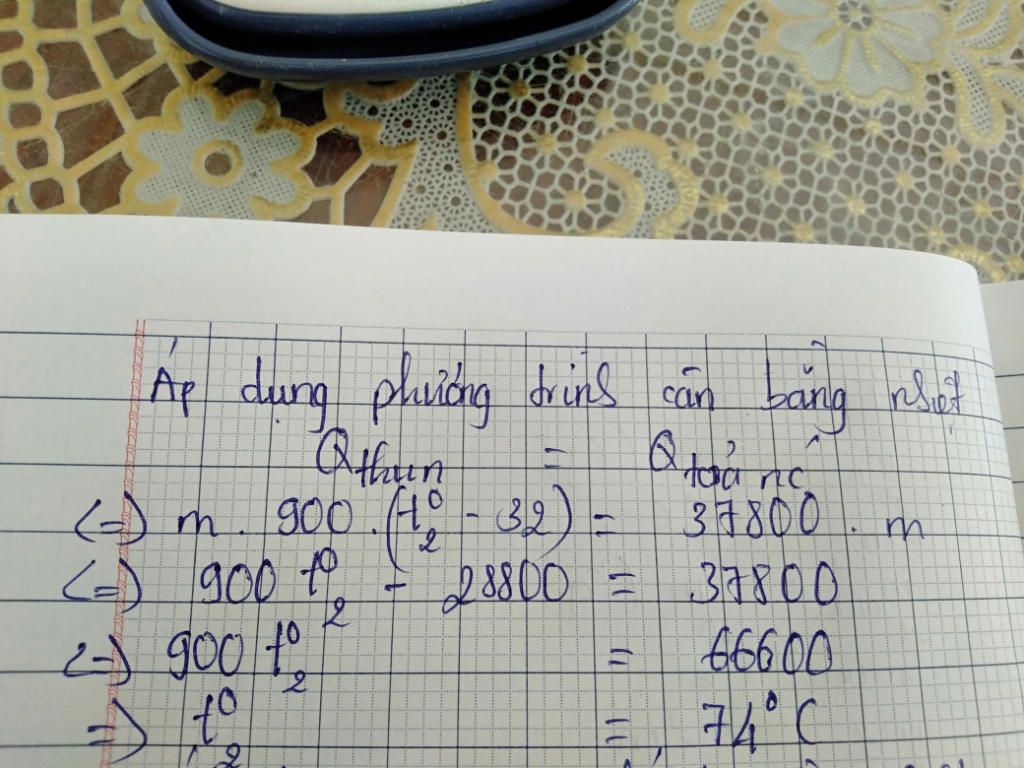 Áp dụng phương trình cân bằng nhiệt
Qthu n = Qtoả nc
<=> m . 900 . (t₂⁰ - 32) = 37800 . m
<=> 900 t₂⁰ - 28800 = 37800
<=> 900 t₂⁰ = 66600
=> t₂⁰ = 74⁰ C